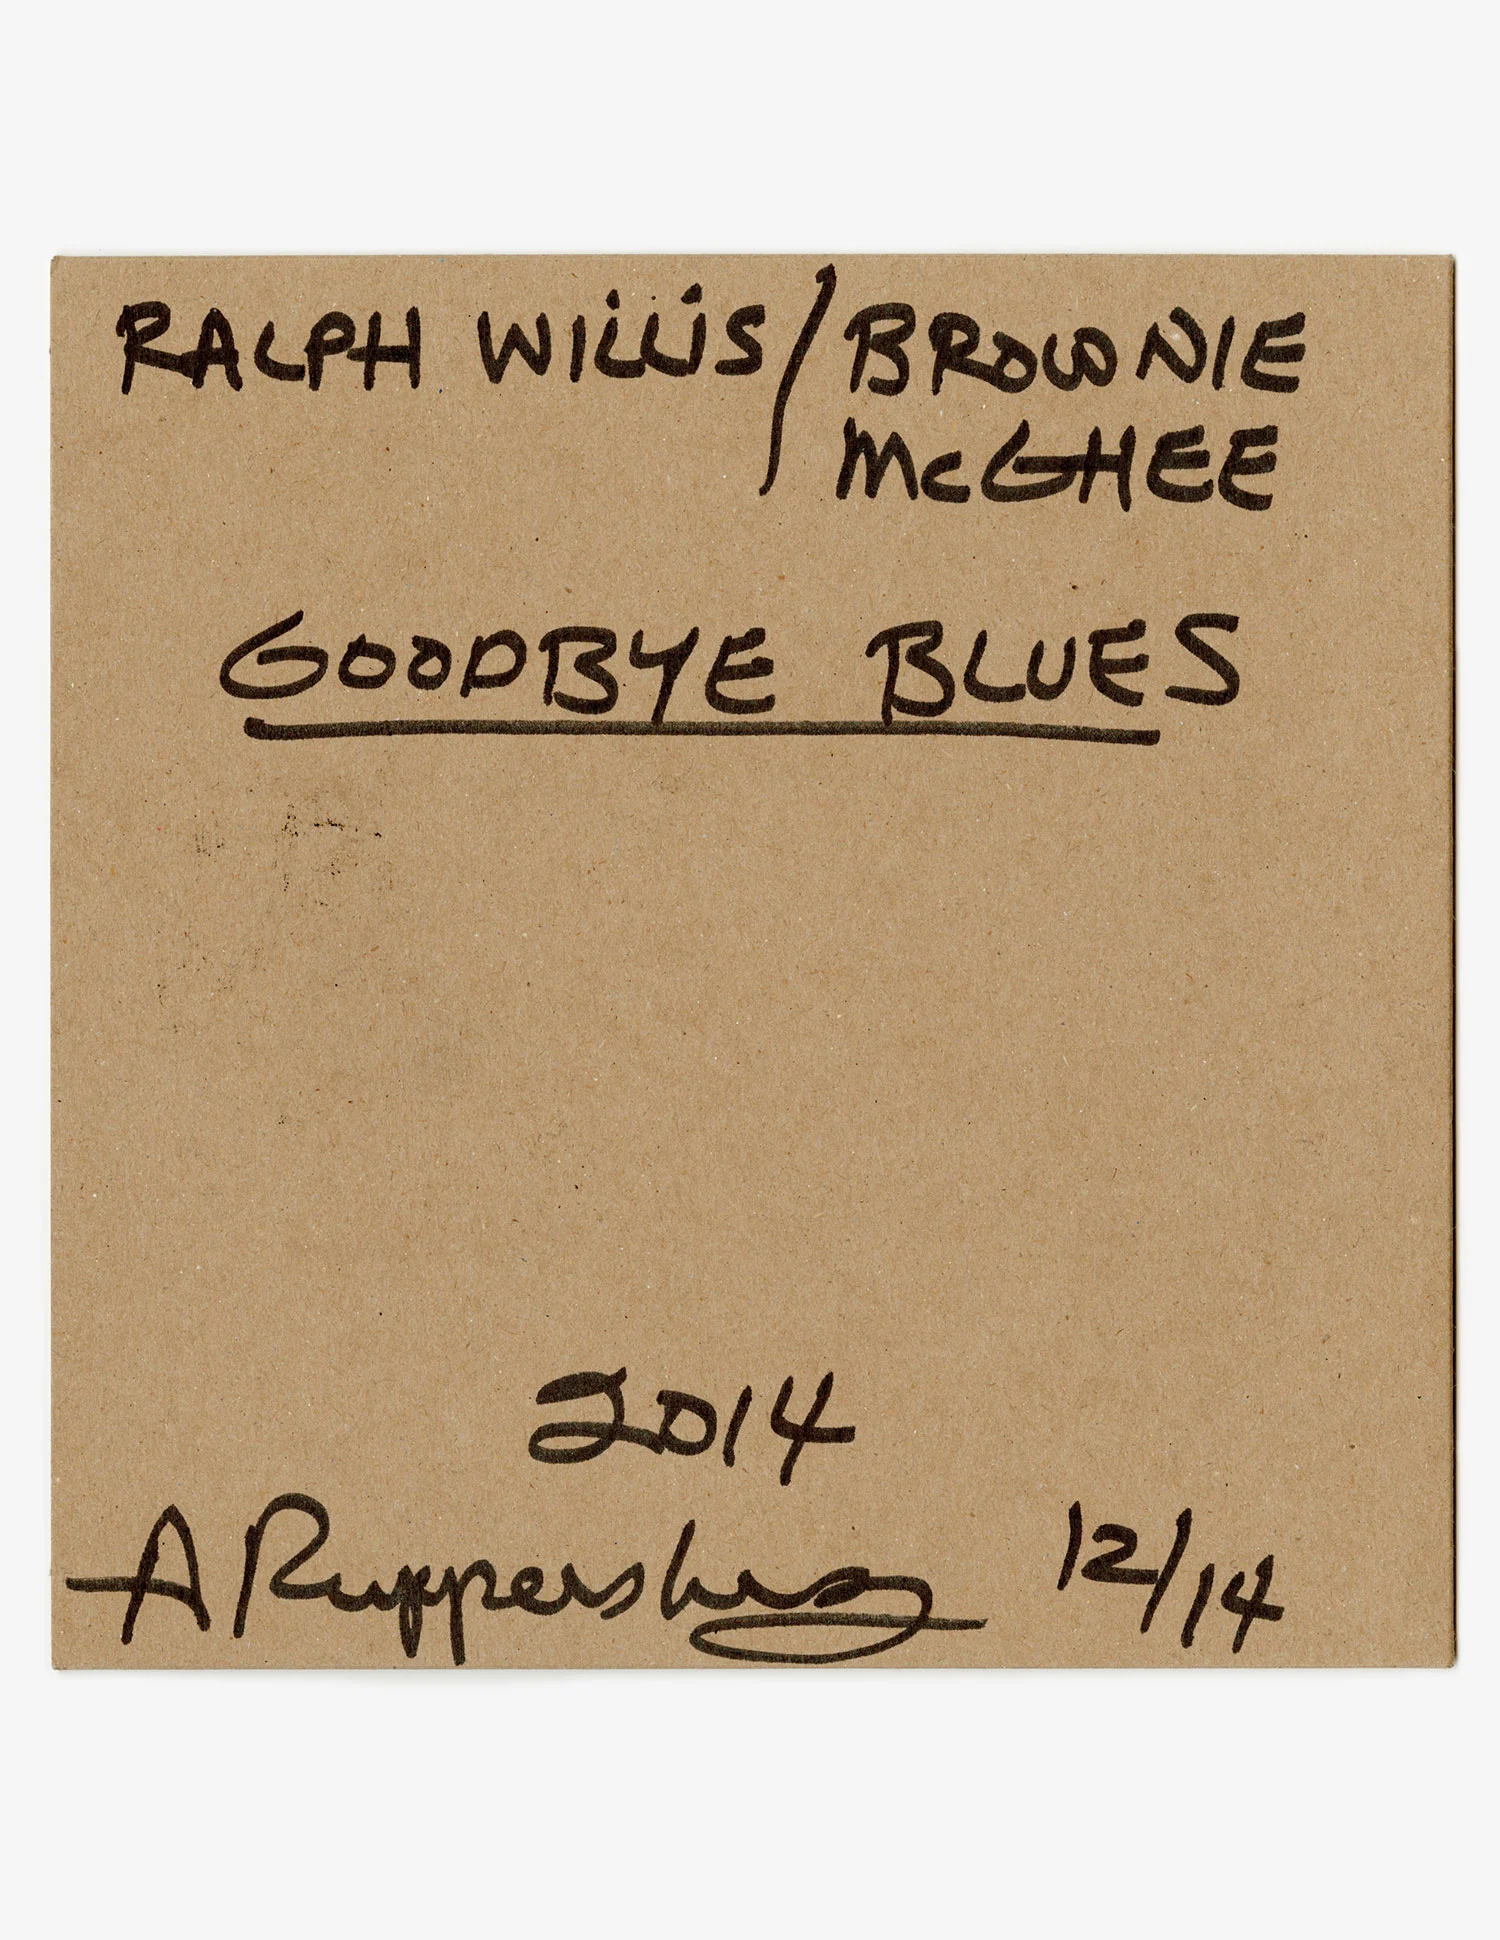 RALPH WILLIS / BROWNIE
McGHEE
GOODBYE BLUES
2014
A Ruppersberg 12/14